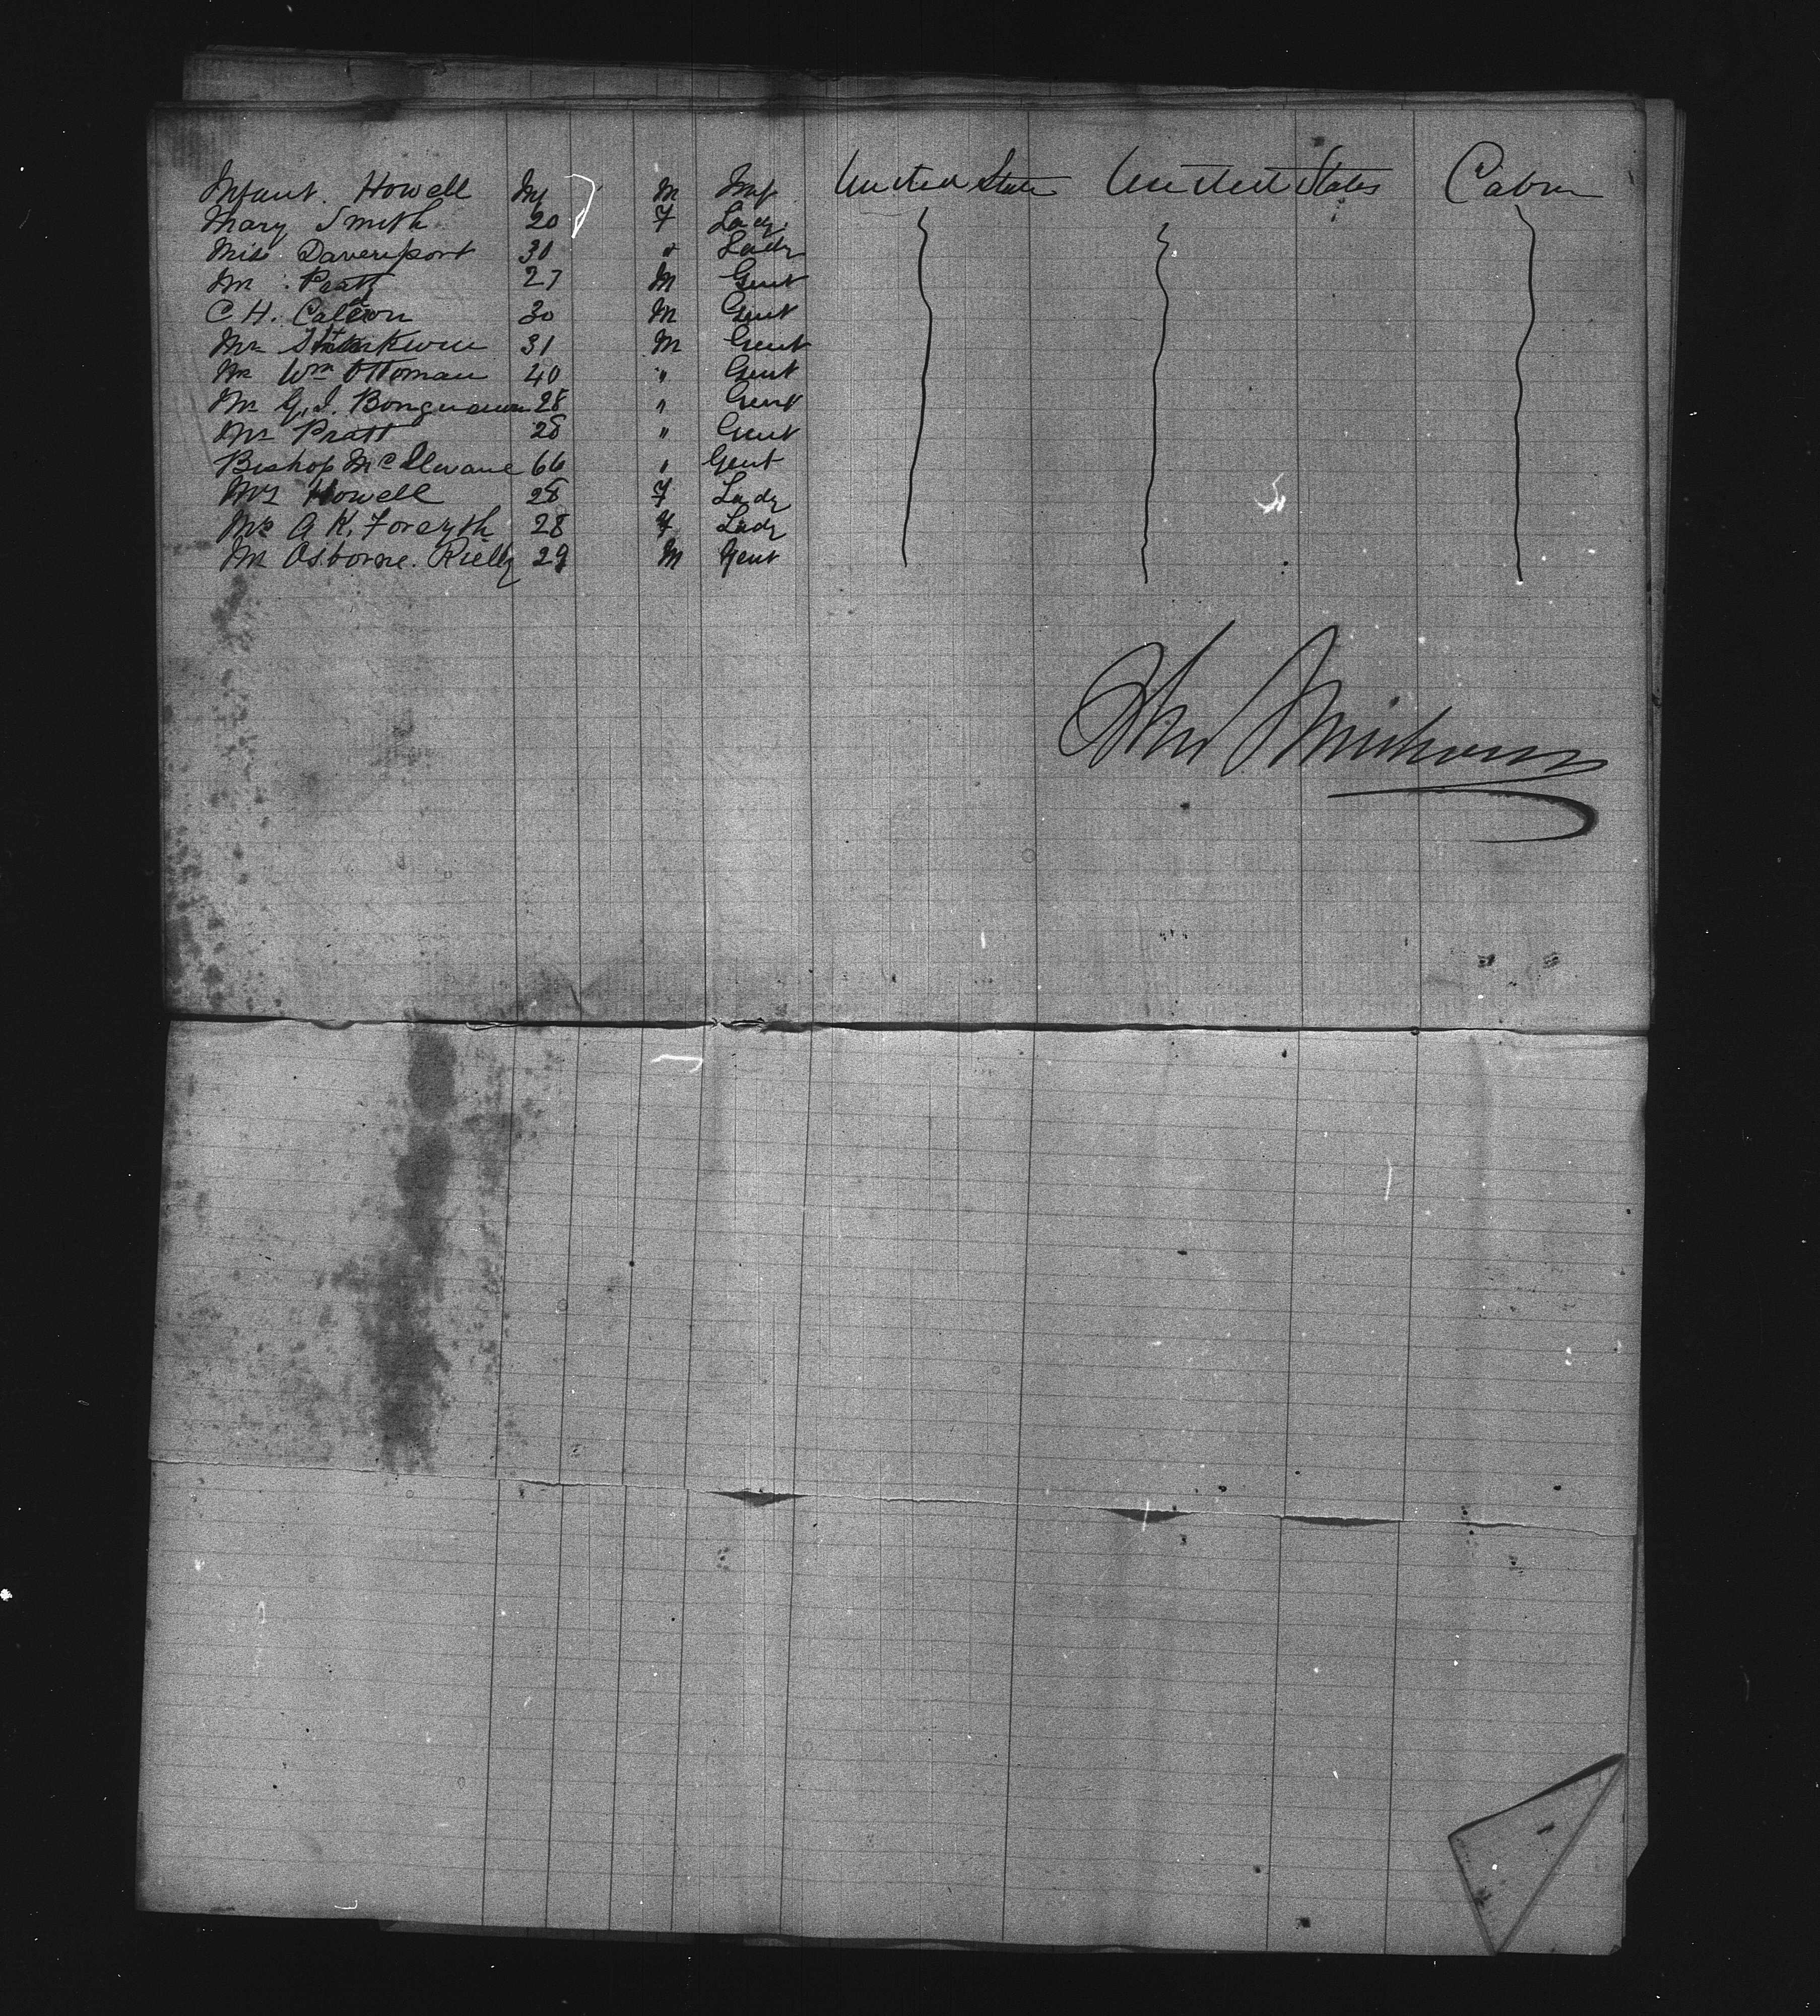 Infant. Howell Inf M Inf United State United States Cabin
Mary Smith 20 F Lady
Miss Davenport 30 " Lady
Mr. Pratt 27 M Gent
C. H. 30 M Gent
Mr 31 M Gent
Mr Wm Ottoman 40 " Gent
Mr G. I. 28 " Gent
Mr Pratt 28 " Gent
Bishop McIlvane 66 " Gent
Mrs Howell 28 F Lady
Mrs A K. Forsyth 28 F Lady
Mr Osborne. Rielly 29 M Gent
John